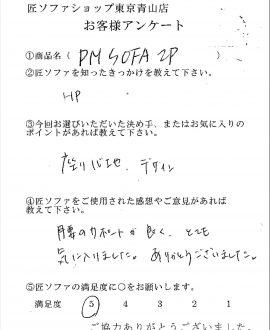 匠ソファショップ東京青山店
お客様アンケート
①商品名(DM SOFA 2P
②匠ソファを知ったきっかけを教えて下さい。
HP
③今回お選びいただいた決め手、またはお気に入りの
ポイントがあれば教えて下さい。
座り心地、デザイン
④匠ソファをご使用された感想やご意見があれば
教えて下さい。
腰のサポートが良く、とても
気に入りました。ありがとうございました。
⑤匠ソファの満足度に○をお願いします。
満足度 5 4 3 2 1
ご協力ありがとうございました。